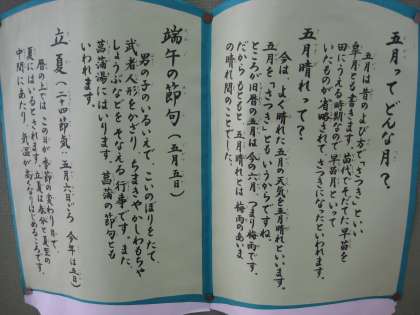 五月ってどんな月？
五月は昔のよび方で「さつき」といい、
皐月とも書きます。苗代でそだてた早苗を
田にうえる時期なので早苗月といって
いたものが省略されて、さつきになったといわれます。
五月晴れって？
今は、よく晴れた五月の天気を五月晴れといいます。
五月を、「さつき」ともいうからですね。
ところが旧暦の五月は今の六月、つまり梅雨です。
だからもともと五月晴れとは、梅雨のあいま
の晴れ間のことでした。
端午の節句（五月五日）
男の子のいるいえで、こいのぼりをたて、
武者人形をかざり、ちまきやかしわもちや
しょうぶなどをそなえる行事です。また、
菖蒲湯にはいります。菖蒲の節句とも
いわれます。
立夏（二十四節気：五月六日ごろ 今年は五日）
暦の上では、この日が季節の変わり目で、
夏にはいるとされます。立夏は春分と夏至の
中間にあたり、気温が高くなりはじめるころです。